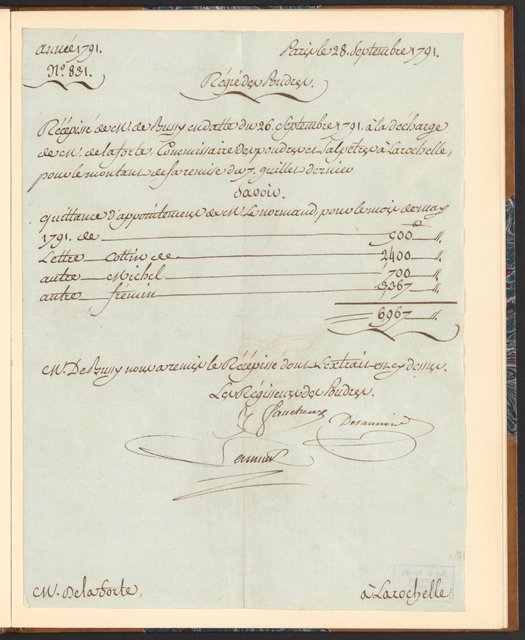 année 1791. Paris le 28. Septembre 1791.
N.º 831.
Régie des Poudres.
Récépissé de M. de Bussy en datte du 26. Septembre 1791. à la decharge
de M. de laforte, Commissaire des poudres et Salpêtres à Larochelle,
pour le montant de sa remise du 7. Juillet dernier
Savoir.
quittance d'appointemens de M. Lenormand, pour le mois de may
1791. de 500 "
Lettre Cottin de 2400 "
autre Michel 700 "
autre frémin 3,367 "
6967 "
M. De Bussy nous a remis le Récépissé dont l'extrait est cy dessus.
Les Régisseurs des Poudres.
M. Delaforte à Larochelle